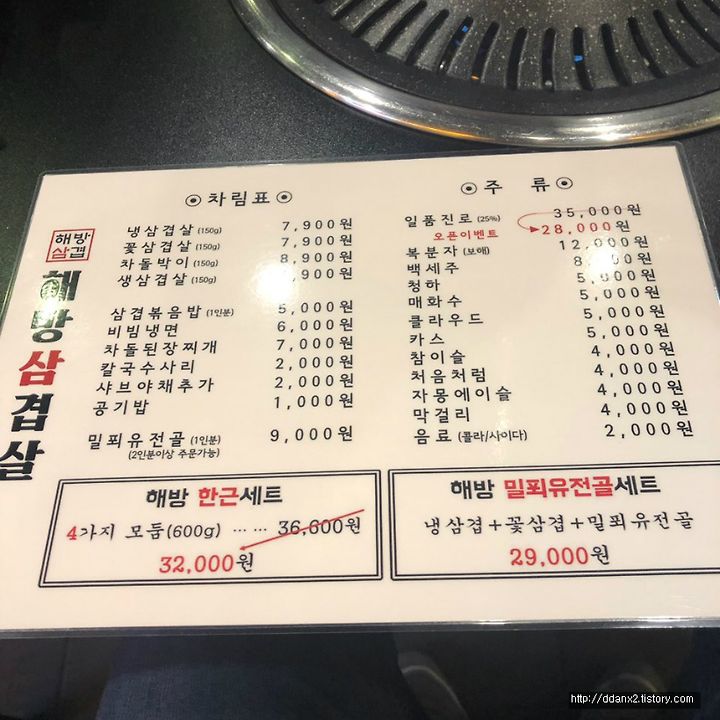 해방
삼겹
해방삼겹살
차림표
냉삼겹살 (150g) 7,900원
꽃삼겹살 (150g) 7,900원
차돌박이 (150g) 8,900원
생삼겹살 (150g) ,900원
삼겹볶음밥 (1인분) 5,000원
비빔냉면 6,000원
차돌된장찌개 7,000원
칼국수사리 2,000원
샤브야채추가 2,000원
공기밥 1,000원
밀푀유전골 (1인분) 9,000원
(2인분이상 주문가능)
주 류
일품진로 (25%) 35,000원
오픈이벤트 28,000원
복분자 (보해) 12,000원
백세주 8,000원
청하 5,000원
매화수 5,000원
클라우드 5,000원
카스 5,000원
참이슬 4,000원
처음처럼 4,000원
자몽에이슬 4,000원
막걸리 4,000원
음료 (콜라/사이다) 2,000원
해방 한근세트
4가지 모둠(600g) ⋯ ⋯ 36,600원
32,000원
해방 밀푀유전골세트
냉삼겹+꽃삼겹+밀푀유전골
29,000원
http://ddanx2.tistory.com